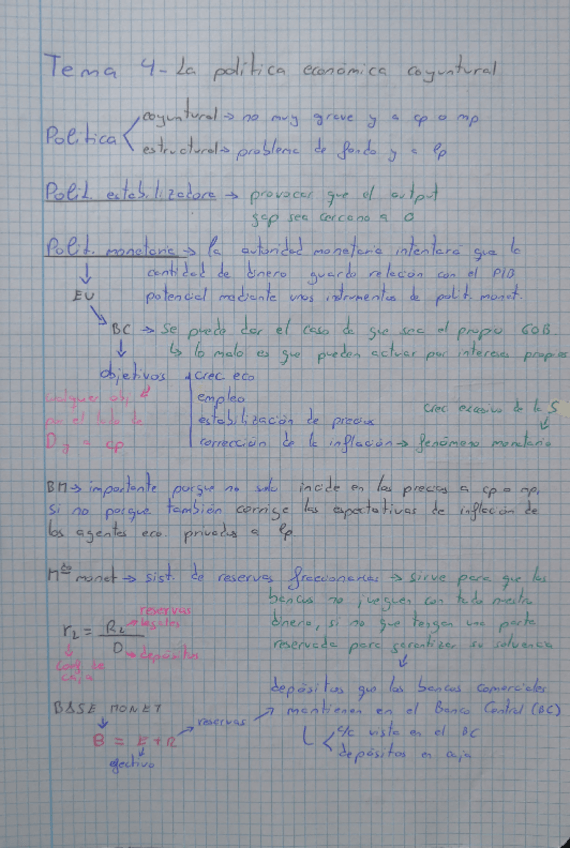 Tema 4- La política económica coyuntural
Política
coyuntural → no muy grave y a cp o mp
estructural → problema de fondo y a lp
Polit. estabilizadora → provocar que el output
gap sea cercano a 0
Polit. monetaria → la autoridad monetaria intentará que la
cantidad de dinero guarde relación con el PIB
potencial mediante unos instrumentos de polit. monet.
EU
BC → Se puede dar el caso de que sea el propio GOB
↳ lo malo es que pueden actuar por intereses propios
objetivos
crec eco
empleo
estabilización de precios
corrección de la inflación → fenómeno monetario
crec excesivo de la S
cualquier obj.
por el lado de
Dg a cp
BM → importante porque no solo incide en los precios a cp o mp,
si no porque también corrige las expectativas de inflación de
los agentes eco. privados a lp
Mdo monet → sist. de reservas fraccionarias → sirve para que los
bancos no jueguen con todo nuestro
dinero, si no que tengan una parte
reservada para garantizar su solvencia
rL = RL / D
reservas
legales
depósitos
coef. de
caja
depósitos que los bancos comerciales
mantienen en el Banco Central (BC)
c/c vista en el BC
depósitos en caja
BASE MONET
B = E + R → reservas
efectivo